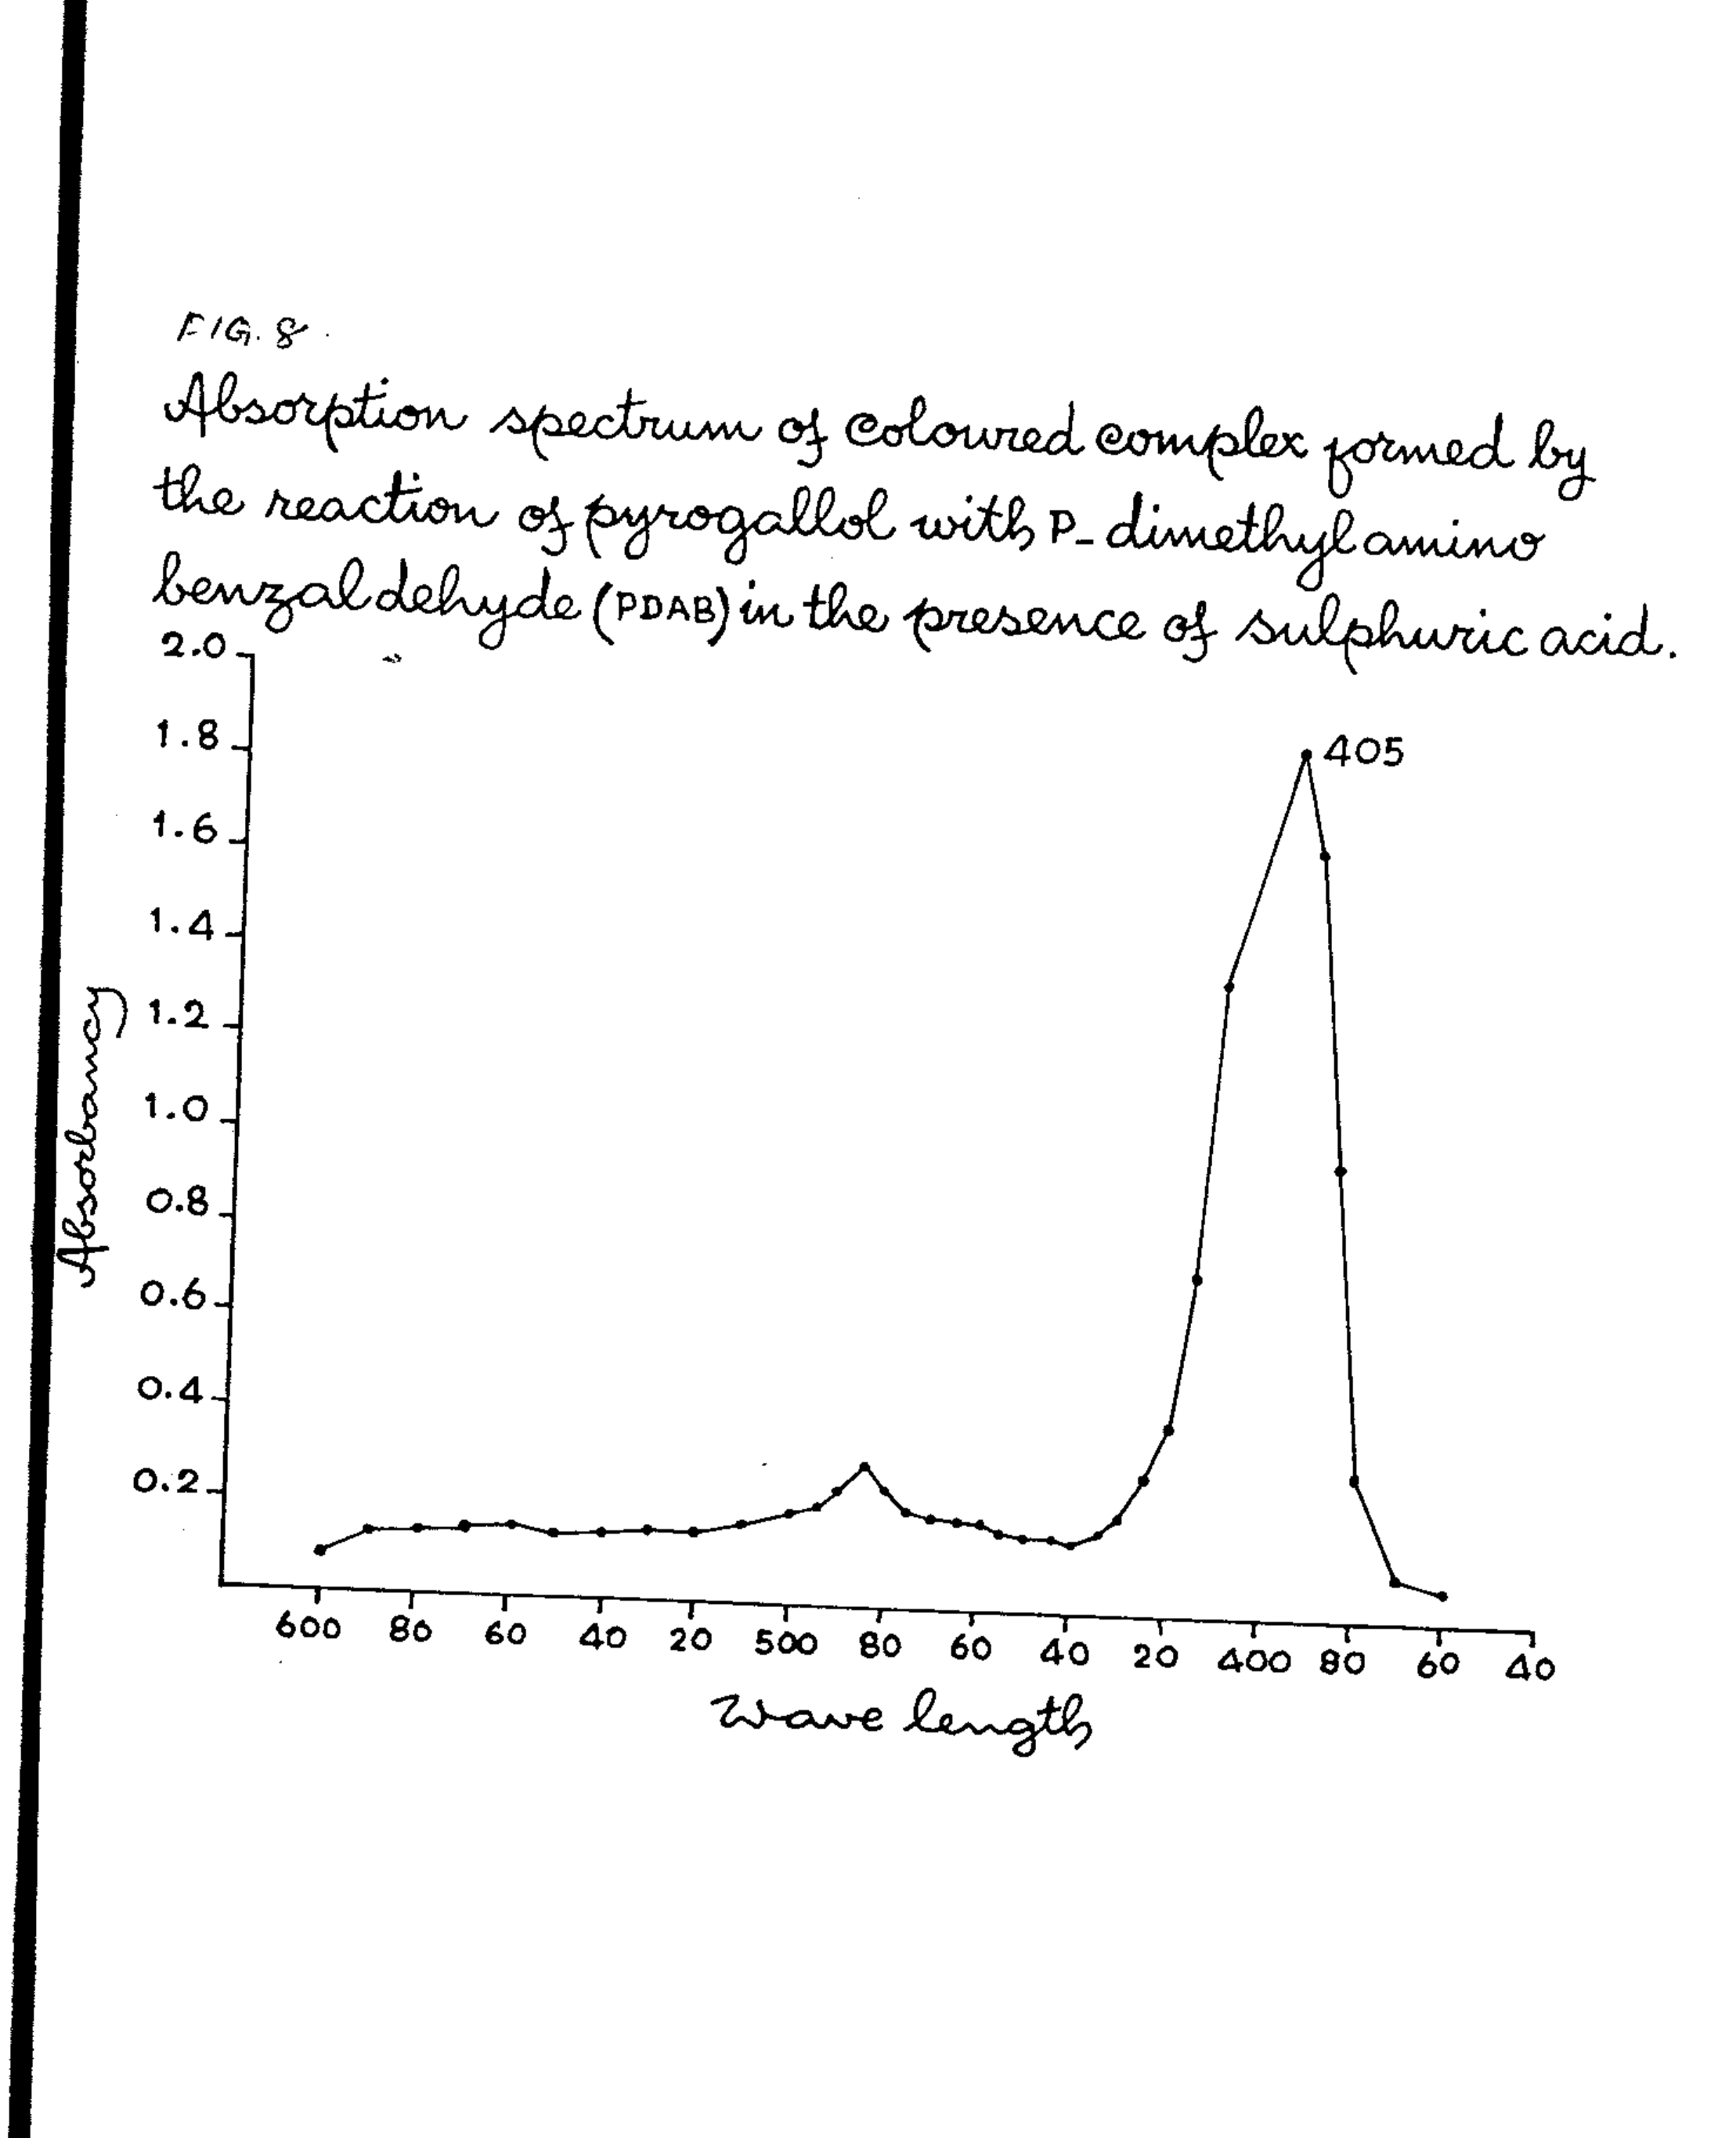 FIG. 8
Absorption spectrum of coloured complex formed by
the reaction of pyrogallol with P_ dimethylamino
benzaldehyde (PDAB) in the presence of sulphuric acid.
2.0
405
1.8
1.6
1.4
1.2
1.0
0.8
0.6
0.4
0.2
Absorbancy
600 80 60 40 20 500 80 60 40 20 400 80 60 40
Wave length